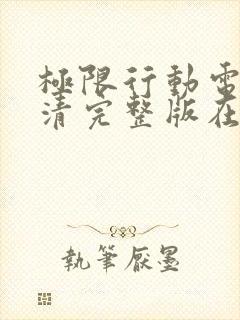 極限行動電
清完整版在
執筆厭墨